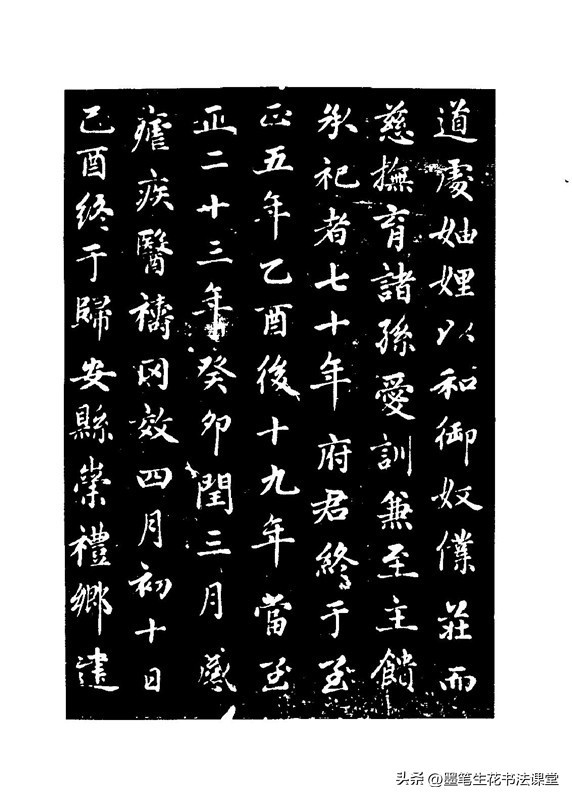 道處妯娌以和御奴僕莊而
慈撫育諸孫愛訓兼至主饋
承祀者七十年府君終于至
正五年乙酉後十九年當至
正二十三年癸卯閏三月感
瘧疾醫禱罔效四月初十日
己酉終于歸安縣崇禮鄉建
头条 @墨笔生花书法课堂